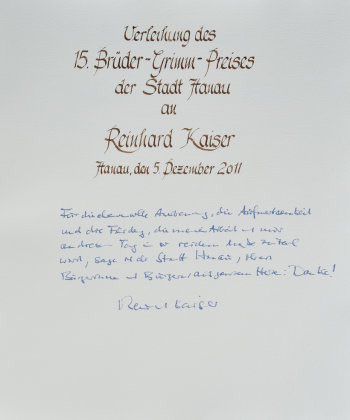 Verleihung des
15. Brüder-Grimm-Preises
der Stadt Hanau
an
Reinhard Kaiser
Hanau, den 5. Dezember 2011
Für die ehrenvolle Auszeichnung, die Aufmerksamkeit
und die Förderung, die meiner Arbeit und mir
an diesem Tag in so reichem Maße zuteil
wird, sage ich der Stadt Hanau, ihren
Bürgerinnen und Bürgern aus ganzem Herzen: Danke!
Reinhard Kaiser